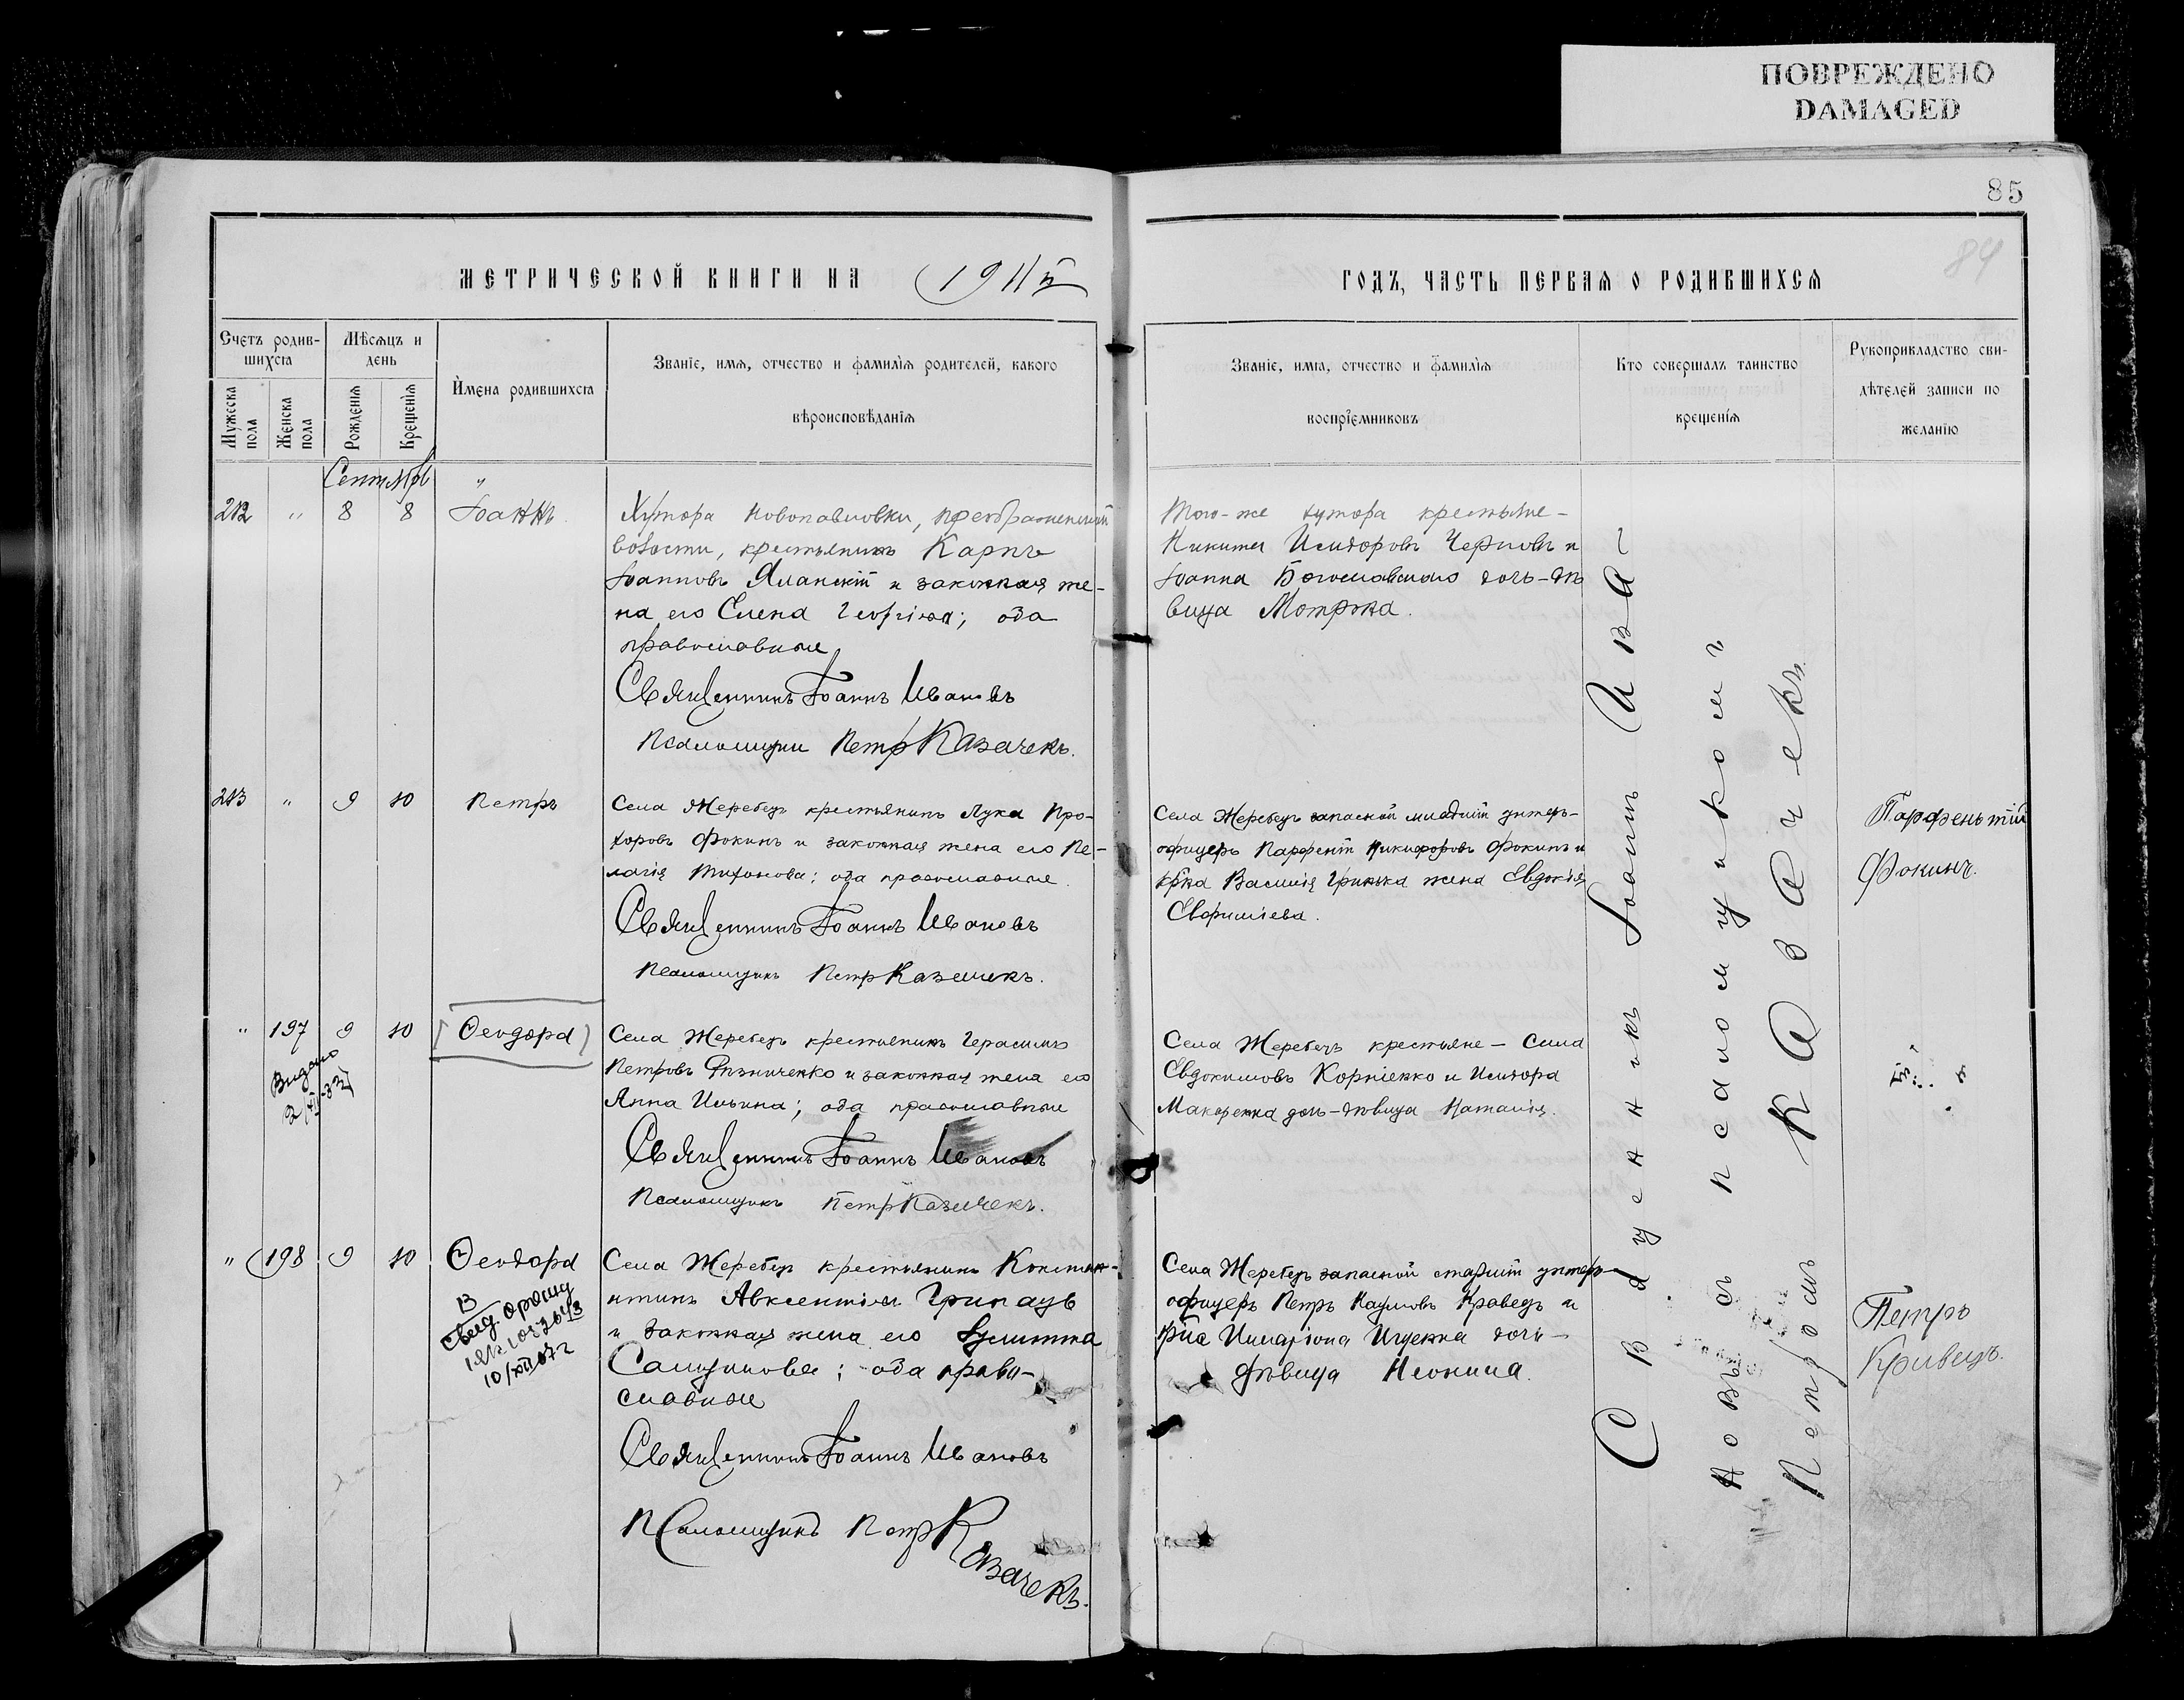 ПОВРЕЖДЕНО
DAMAGED
85
84
МЕТРИЧЕСКОЙ КНИГИ НА 1911й
ГОДЪ, ЧАСТЬ ПЕРВАЯ О РОДИВШИХСЯ
Счетъ родив-
шихся
Мужеска
пола
Женска
пола
Мѣсяцъ и
день
Рожденія
Крещенія
Имена родившихся
Званіе, имя, отчество и фамилія родителей, какого
вѣроисповѣданія
Званіе, имя, отчество и фамилія
воспріемниковъ
Кто совершалъ таинство
крещенія
Рукоприкладство сви-
дѣтелей записи по
желанію
Сентябрь
212 " 8 8 Іоаннъ
Хутора Новопавловки, Преображенской
волости, крестьянинъ Карпъ
Іоанновъ Яланскій и законная же-
на его Елена Георгіева; оба
православные
Священникъ Іоаннъ Ивановъ
Псаломщикъ Петръ Казачекъ.
Того-же хутора крестьяне –
Никита Исидоровъ Черновъ и
Іоанна Богославскаго дочь-дѣ
вица Мотрона.
213 " 9 10 Петръ
Села Жеребецъ крестьянинъ Лука Про-
хоровъ Фокинъ и законная жена его Пе-
лагія Тихонова; оба православные.
Священникъ Іоаннъ Ивановъ
Псаломщикъ Петръ Казачекъ.
Села Жеребецъ запасной младшій унтеръ-
офицеръ Парфеній Никифоровъ Фокинъ и
кр-на Василія жена Евдокія
Парфентій
Фокинъ.
" 197 9 10 Ѳеодора
Выдано
Села Жеребецъ крестьянинъ Герасимъ
Петровъ Рѣзниченко и законная жена его
Анна Ильина; оба православные
Священникъ Іоаннъ Ивановъ
Псаломщикъ Петръ Казачекъ.
Села Жеребецъ крестьяне – Сила
Евдокимовъ Корніенко и Исидора
Макаренка дочь-дѣвица Наталія.
" 198 9 10 Ѳеодора
10/XII 67 г
Села Жеребецъ крестьянинъ Констан-
тинъ Авксентіевъ
и законная жена его Іулитта
; оба право-
славные
Священникъ Іоаннъ Ивановъ
Псаломщикъ Петръ Казачекъ.
Села Жеребецъ запасной старшій унтеръ-
офицеръ Петръ Наумовъ Кривецъ и
Иларіона дочь –
дѣвица Неонила.
Петръ
Кривецъ.
Священникъ Іоаннъ Ива-
новъ съ псаломщикомъ
Петромъ Казачекъ.